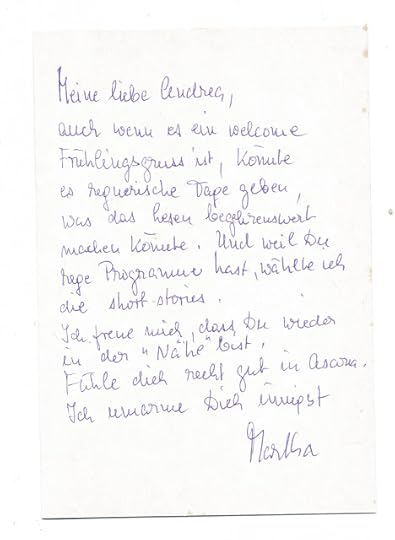 Meine liebe Andrea,
auch wenn es ein welcome
Frühlingsgruss ist, könnte
es regnerische Tage geben,
was das Lesen begehrenswert
machen könnte. Und weil Du
rege Programme hast, wählte ich
die short-stories.
Ich freue mich, dass Du wieder
in der "Nähe" bist.
Fühle dich recht gut in Ascona.
Ich umarme Dich innigst
Martha